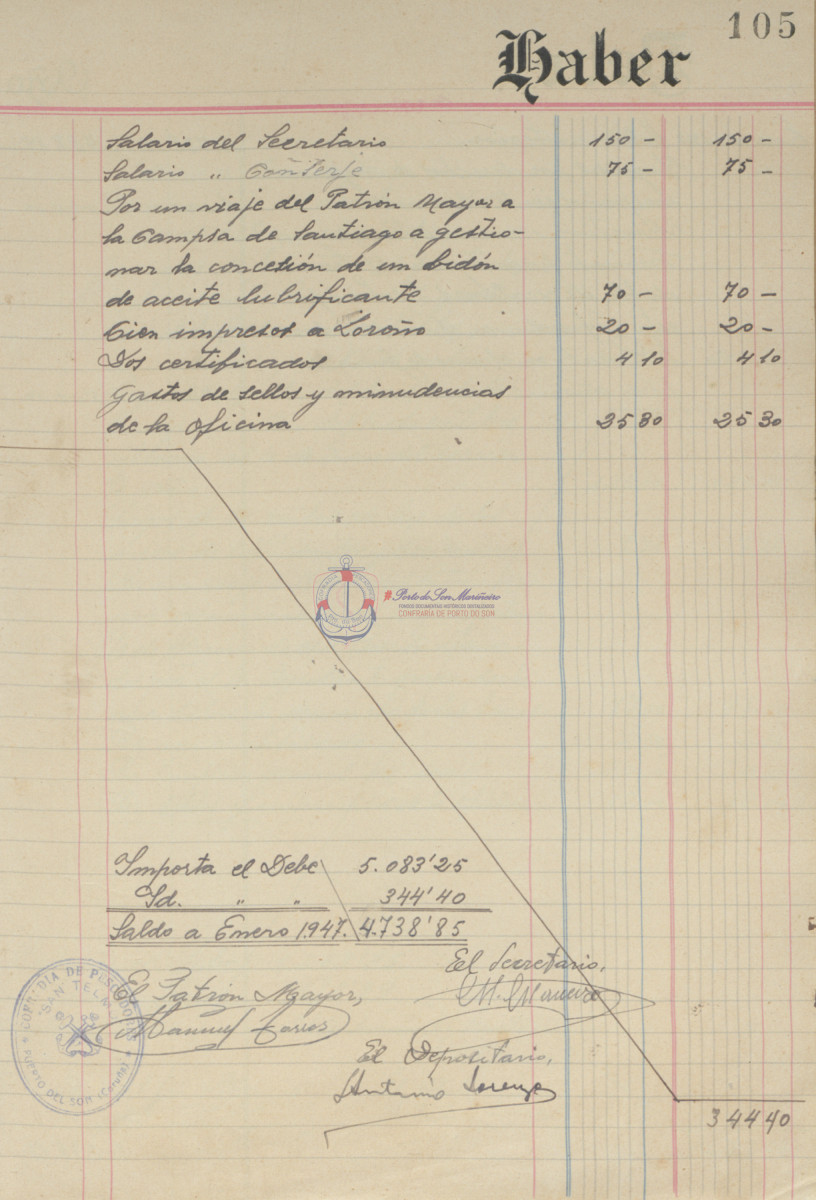 105
Haber
Salario del Secretario 150 - 150 -
Salario „ Conserje 75 - 75 -
Por un viaje del Patrón Mayor a
la Campsa de Santiago a gestio-
nar la concesión de un bidón
de aceite lubrificante 70 - 70 -
Cien impresos a Loroño 20 - 20 -
Dos certificados 4 10 4 10
Gastos de sellos y minudencias
de la Oficina 25 30 25 30
#Porto do Son Mariñeiro
FONDOS DOCUMENTAIS HISTÓRICOS DIXITALIZADOS
CONFRARÍA DE PORTO DO SON
Importa el Debe 5.083'25
Id. „ „ 344'40
Saldo a Enero 1.947. 4.738'85
El Secretario,
El Patrón Mayor,
COFRADÍA DE PESCADORES
"SAN TECLA"
PUERTO DEL SON (Coruña)
Manuel
El Depositario,
Antonio Lorenzo
344 40